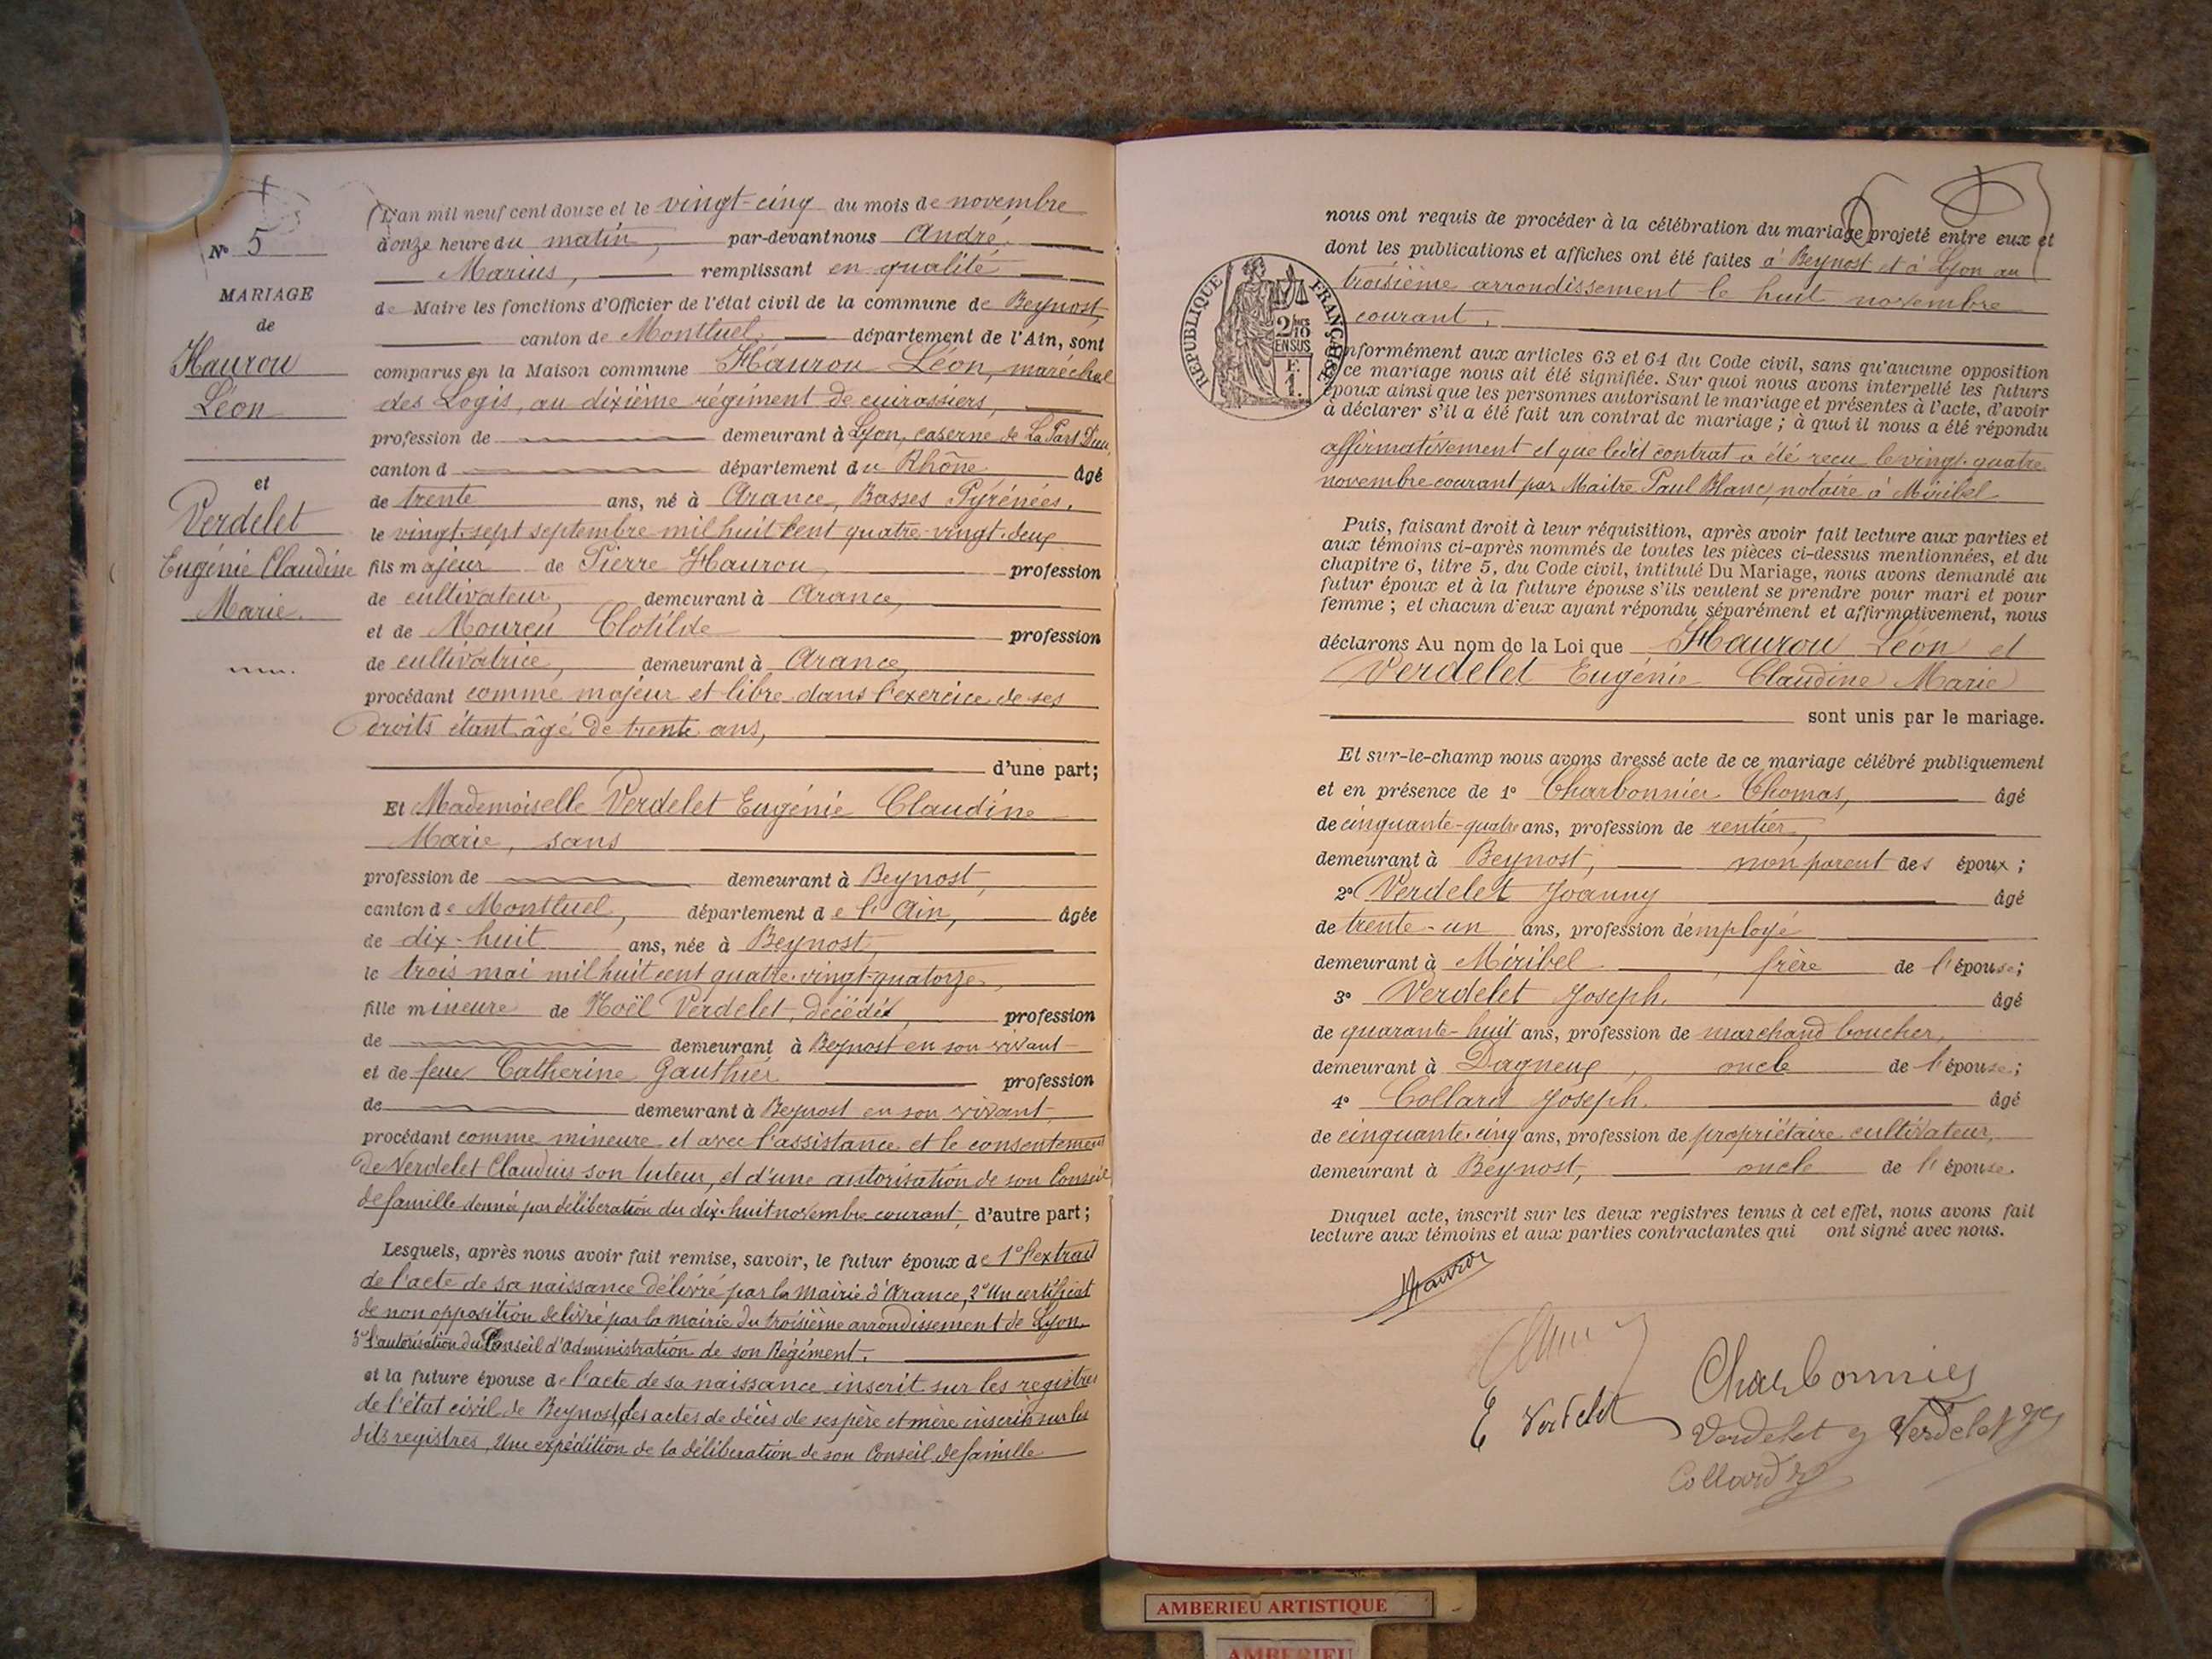 N° 5
MARIAGE
de
Haurou
Léon
et
Verdelet
Eugénie Claudine
Marie.
L'an mil neuf cent douze et le vingt-cinq du mois de novembre
à onze heure du matin, par-devant nous André,
Marius, remplissant en qualité
de Maire les fonctions d'Officier de l'état civil de la commune de Beynost,
canton de Montluel, département de l'Ain, sont
comparus en la Maison commune Haurou Léon, maréchal
des Logis, au dixième régiment de cuirassiers,
profession de demeurant à Lyon, caserne de La Part Dieu,
canton d département du Rhône âgé
de trente ans, né à Arance, Basses Pyrénées,
le vingt-sept septembre mil huit cent quatre-vingt-deux
fils majeur de Pierre Haurou, profession
de cultivateur, demeurant à Arance,
et de Moureu Clotilde profession
de cultivatrice, demeurant à Arance,
procédant comme majeur et libre dans l'exercice de ses
droits étant âgé de trente ans,
d'une part;
Et Mademoiselle Verdelet Eugénie Claudine
Marie, sans
profession de demeurant à Beynost,
canton de Montluel, département de l'Ain, âgée
de dix-huit ans, née à Beynost,
le trois mai mil huit cent quatre-vingt-quatorze,
fille mineure de Noël Verdelet, décédé, profession
de demeurant à Beynost en son vivant
et de feue Catherine Gauthier profession
de demeurant à Beynost en son vivant,
procédant comme mineure et avec l'assistance et le consentement
de Verdelet Claudius son tuteur, et d'une autorisation de son Conseil
de famille donnée par délibération du dix-huit novembre courant, d'autre part;
Lesquels, après nous avoir fait remise, savoir, le futur époux de 1° l'extrait
de l'acte de sa naissance délivré par la mairie d'Arance, 2° Un certificat
de non opposition délivré par la mairie du troisième arrondissement de Lyon,
3° l'autorisation du Conseil d'administration de son Régiment.
et la future épouse de l'acte de sa naissance inscrit sur les registres
de l'état civil de Beynost, des actes de décès de ses père et mère inscrits sur les
dits registres, Une expédition de la délibération de son Conseil de famille
nous ont requis de procéder à la célébration du mariage projeté entre eux et
dont les publications et affiches ont été faites à Beynost et à Lyon au
troisième arrondissement le huit novembre
courant,
RÉPUBLIQUE FRANÇAISE
2/10
EN SUS
F.
1.
conformément aux articles 63 et 64 du Code civil, sans qu'aucune opposition
à ce mariage nous ait été signifiée. Sur quoi nous avons interpellé les futurs
époux ainsi que les personnes autorisant le mariage et présentes à l'acte, d'avoir
à déclarer s'il a été fait un contrat de mariage ; à quoi il nous a été répondu
affirmativement et que ledit contrat a été reçu le vingt-quatre
novembre courant par Maître Paul Blanc, notaire à Miribel
Puis, faisant droit à leur réquisition, après avoir fait lecture aux parties et
aux témoins ci-après nommés de toutes les pièces ci-dessus mentionnées, et du
chapitre 6, titre 5, du Code civil, intitulé Du Mariage, nous avons demandé au
futur époux et à la future épouse s'ils veulent se prendre pour mari et pour
femme ; et chacun d'eux ayant répondu séparément et affirmativement, nous
déclarons Au nom de la Loi que Haurou Léon et
Verdelet Eugénie Claudine Marie
sont unis par le mariage.
Et sur-le-champ nous avons dressé acte de ce mariage célébré publiquement
et en présence de 1° Charbonnier Thomas, âgé
de cinquante-quatre ans, profession de rentier,
demeurant à Beynost, non parent des époux ;
2° Verdelet Joanny âgé
de trente-un ans, profession d'employé
demeurant à Miribel, frère de l'épouse;
3° Verdelet Joseph, âgé
de quarante-huit ans, profession de marchand boucher,
demeurant à Dagneux, oncle de l'épouse;
4° Collard Joseph. âgé
de cinquante-cinq ans, profession de propriétaire cultivateur,
demeurant à Beynost, oncle de l'épouse.
Duquel acte, inscrit sur les deux registres tenus à cet effet, nous avons fait
lecture aux témoins et aux parties contractantes qui ont signé avec nous.
Haurou
Charbonnier
E Verdelet
Verdelet J Verdelet
Collard
AMBERIEU ARTISTIQUE
AMBERIEU